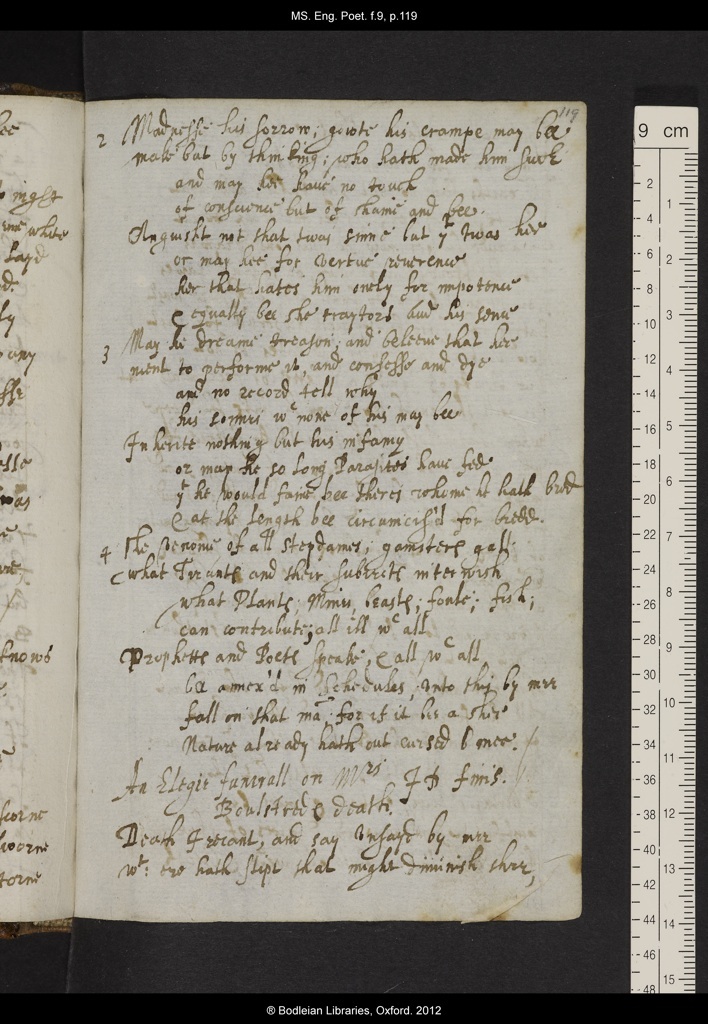 MS. Eng. Poet. f.9, p.119
119
2 Madnesse his sorrow; goute his crampe may bee
make but by thinking; who hath made him such
and may hee have no touch
of conscience but of shame and fee.
Anguisht not that twas sinne but yt twas hee
or may hee for vertue reverence
her that hates him onely for impotence
& equally bee she traytors and his sence
3 May he dreame treason; and beleeve that hee
ment to performe it, and confesse and dye
and no record tell why
his sonns wc none of his may bee
Inherite nothing but his infamy
or may he so long Parasites have fed
yt he would faine bee theirs whome he hath bred
& at the length bee circumcis'd for bredd.
4 The venome of all stepdames; gamsters gall
what Tirants and their subiects interwish
what Plants; Mines, beasts; foule; fish;
can contribute; all ill wc all
Prophetts and Poets speake; & all wc all
be annex'd in Schedules unto this by mee
fall on that man; for if it bee a shee
Nature already hath out cursed mee.
An Elegie funerall on Mris J D finis.
Boulstred & death.
Death I recant, and say unsaid by mee
wt: ere hath slipt that might diminish thee,
knows
scorne
torne
9 cm
2
4
6
8
10
12
14
16
18
20
22
24
26
28
30
32
34
36
38
40
42
44
46
48
1
2
3
4
5
6
7
8
9
10
11
12
13
14
15
® Bodleian Libraries, Oxford. 2012